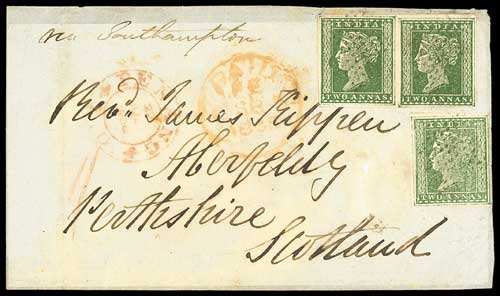 via Southampton
INDIA
TWO ANNAS
INDIA
TWO ANNAS
PAID
Revd. James Rippen
Aberfeldy
Perthshire
Scotland
INDIA
TWO ANNAS